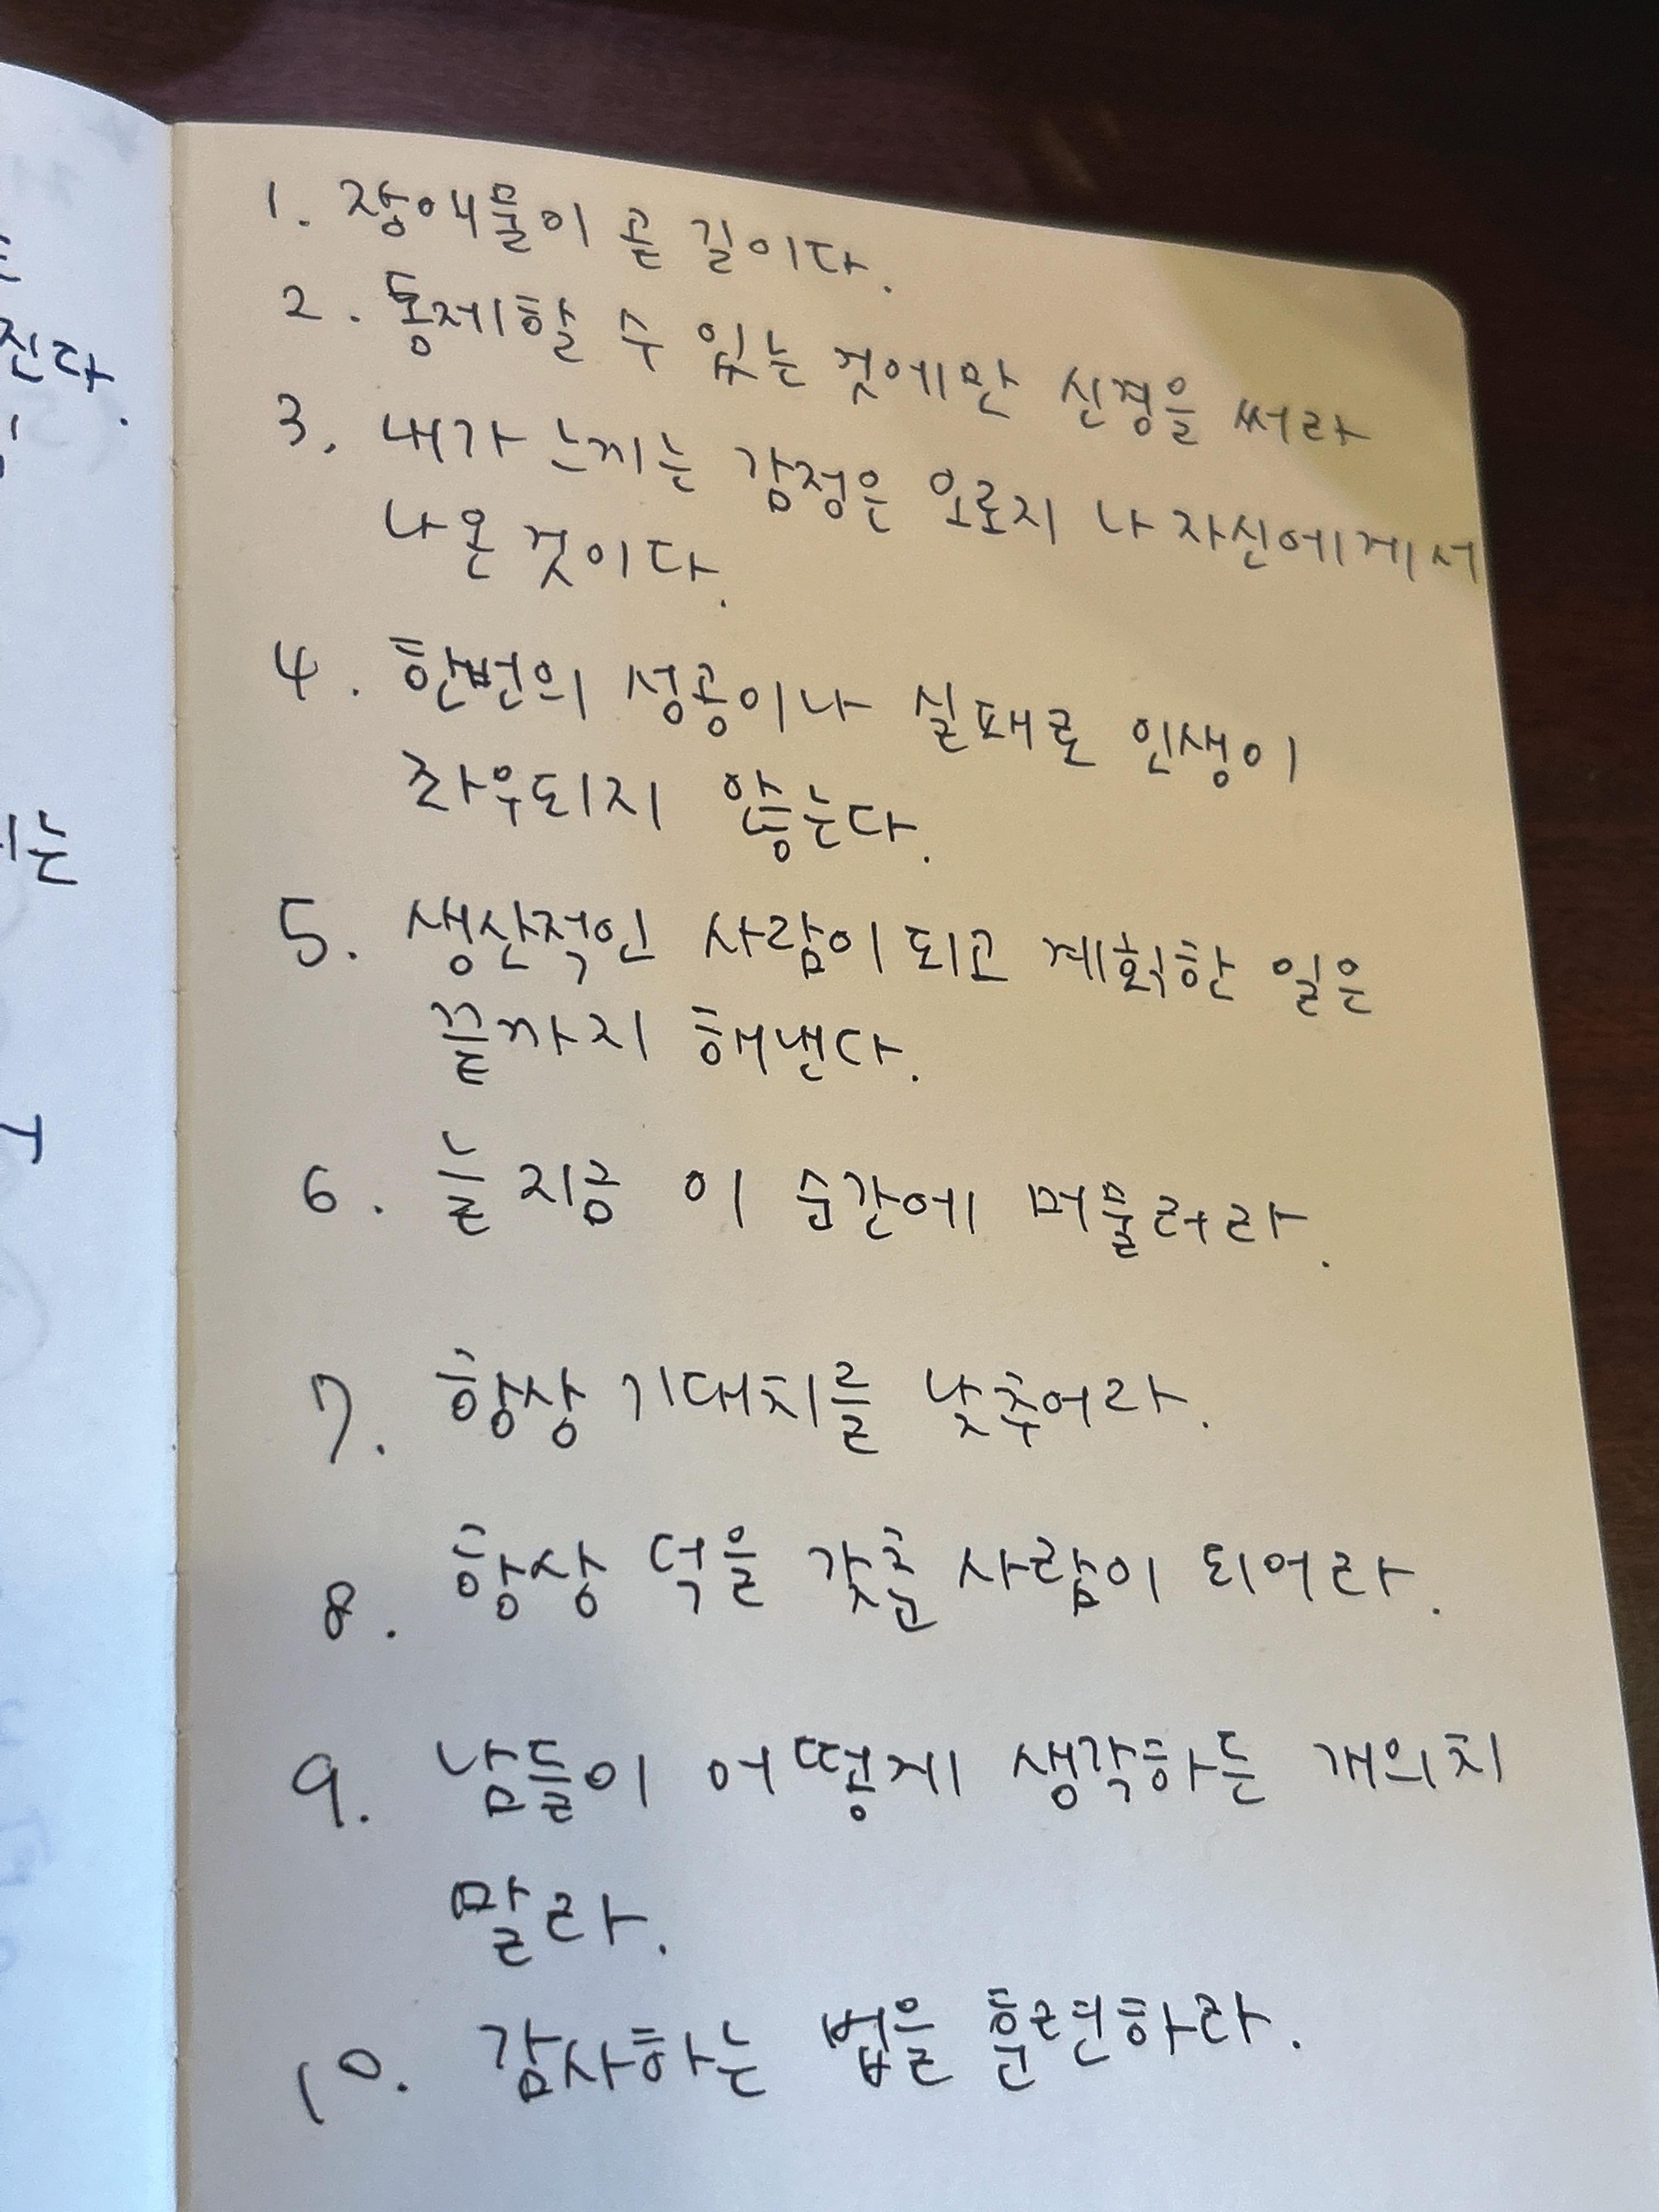 진다.
는
1. 장애물이 곧 길이다.
2. 통제할 수 있는 것에만 신경을 써라
3. 내가 느끼는 감정은 오로지 나 자신에게서
나온 것이다.
4. 한번의 성공이나 실패로 인생이
좌우되지 않는다.
5. 생산적인 사람이 되고 계획한 일은
끝까지 해낸다.
6. 늘 지금 이 순간에 머물러라.
7. 항상 기대치를 낮추어라.
8. 항상 덕을 갖춘 사람이 되어라.
9. 남들이 어떻게 생각하든 개의치
말라.
10. 감사하는 법을 훈련하라.